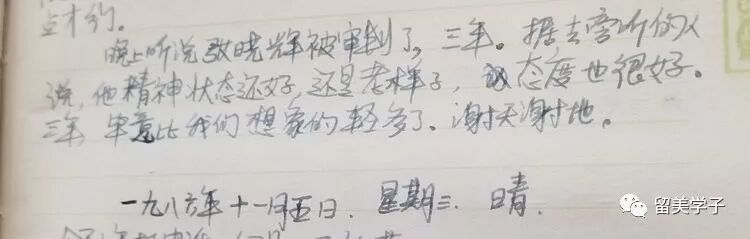 点才行。
晚上听说敬晓辉被审判了，三年。据去旁听的人
说，他精神状态还好，还是老样子，态度也很好。
三年，毕竟比我们想象的轻多了。谢天谢地。
一九八六年十一月五日．星期三．晴．
留美学子